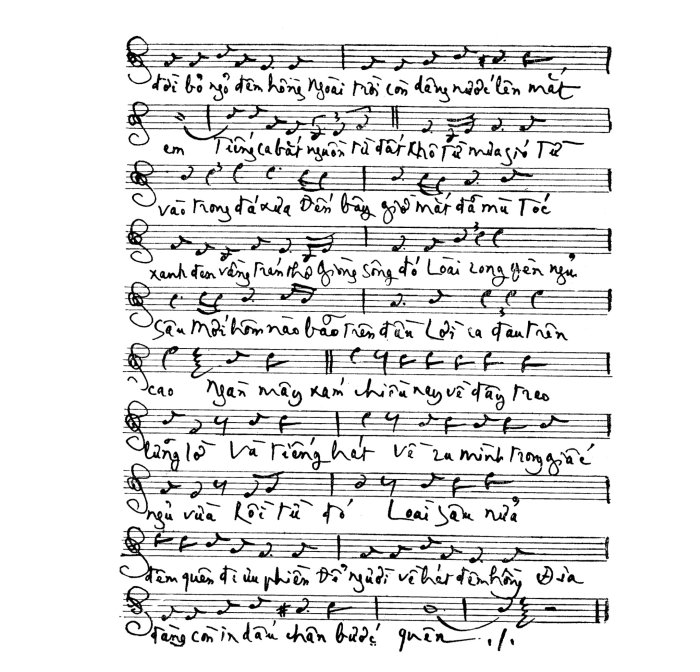 đời bỏ ngỏ đêm hồng Ngoài trời còn dâng nước lên mắt
em Tiếng ca bắt nguồn từ đất khô Từ mưa gió Từ
vào trong đá xưa Đến bây giờ mắt đã mù Tóc
xanh đen vầng trán thơ Giòng sông đó Loài rong yên ngủ
sâu Mới hôm nào bão trên đầu Lời ca đau trên
cao Ngàn mây xám chiều nay về đây treo
lững lờ Và tiếng hát Về ru mình trong giấc
ngủ vừa Rồi từ đó Loài sâu nửa
đêm quên đi ưu phiền Để người về hát đêm hồng Địa
đàng còn in dấu chân bước quên